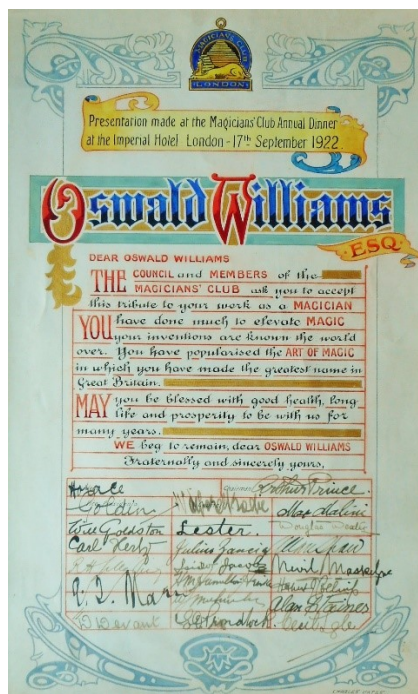 MAGICIANS CLUB
LONDON
Presentation made at the Magicians' Club Annual Dinner
at the Imperial Hotel London - 17th September 1922.
Oswald Williams
ESQ
DEAR OSWALD WILLIAMS
THE COUNCIL and MEMBERS of the
MAGICIANS' CLUB ask you to accept
this tribute to your work as a MAGICIAN
YOU have done much to elevate MAGIC
your inventions are known the world
over. You have popularised the ART OF MAGIC
in which you have made the greatest name in
Great Britain.
MAY you be blessed with good health, long
life and prosperity to be with us for
many years.
WE beg to remain, dear OSWALD WILLIAMS
Fraternally and sincerely yours,
Horace Goldin
Arthur Prince.
Max Malini
Will Goldston
Lester.
Carl Hertz
Julius Zancig
Nevil Maskelyne
D Devant